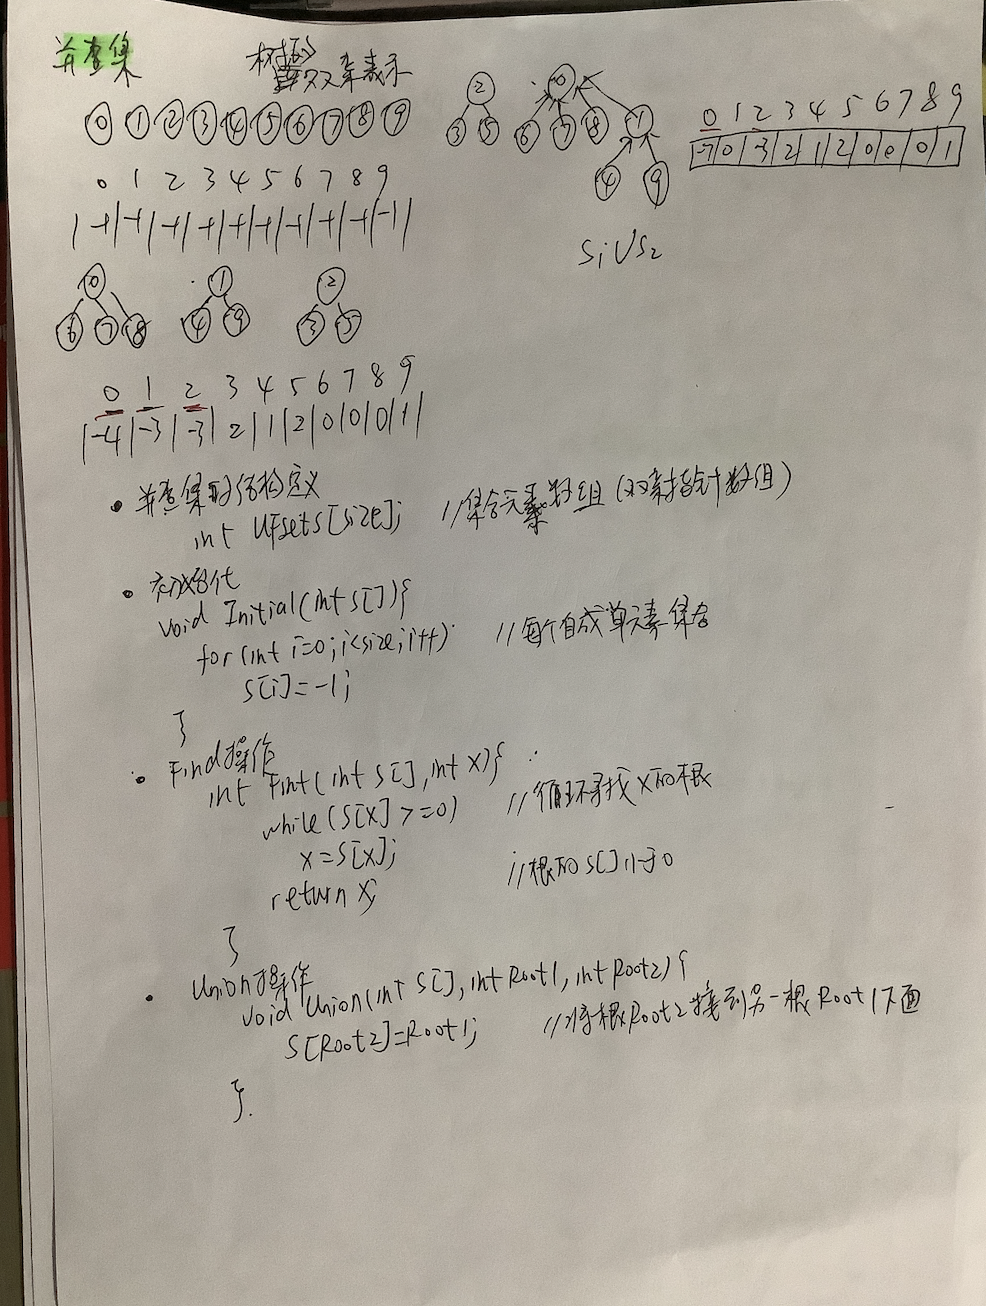 并查集 树的双亲表示
0 1 2 3 4 5 6 7 8 9
0 1 2 3 4 5 6 7 8 9
-1 -1 -1 -1 -1 -1 -1 -1 -1 -1
0
6 7 8
1
4 9
2
3 5
0 1 2 3 4 5 6 7 8 9
-4 -3 -3 2 1 2 0 0 0 1
2
3 5
0
6 7 8 1
4 9
0 1 2 3 4 5 6 7 8 9
-7 0 -3 2 1 2 0 0 0 1
S1US2
并查集的结构定义
int UFsets[size]; //集合元素数组(双亲指针数组)
初始化
void Initial(int S[]){
for(int i=0;i<size;i++) //每个自成单元素集合
S[i]=-1;
}
Find操作
int Fint(int S[],int x){
while(S[x]>=0) //循环寻找x的根
x=S[x];
return x; //根的S[]小于0
}
Union操作
void Union(int S[],int Root1,int Root2){
S[Root2]=Root1; //将根Root2接到另一根Root1下面
}.